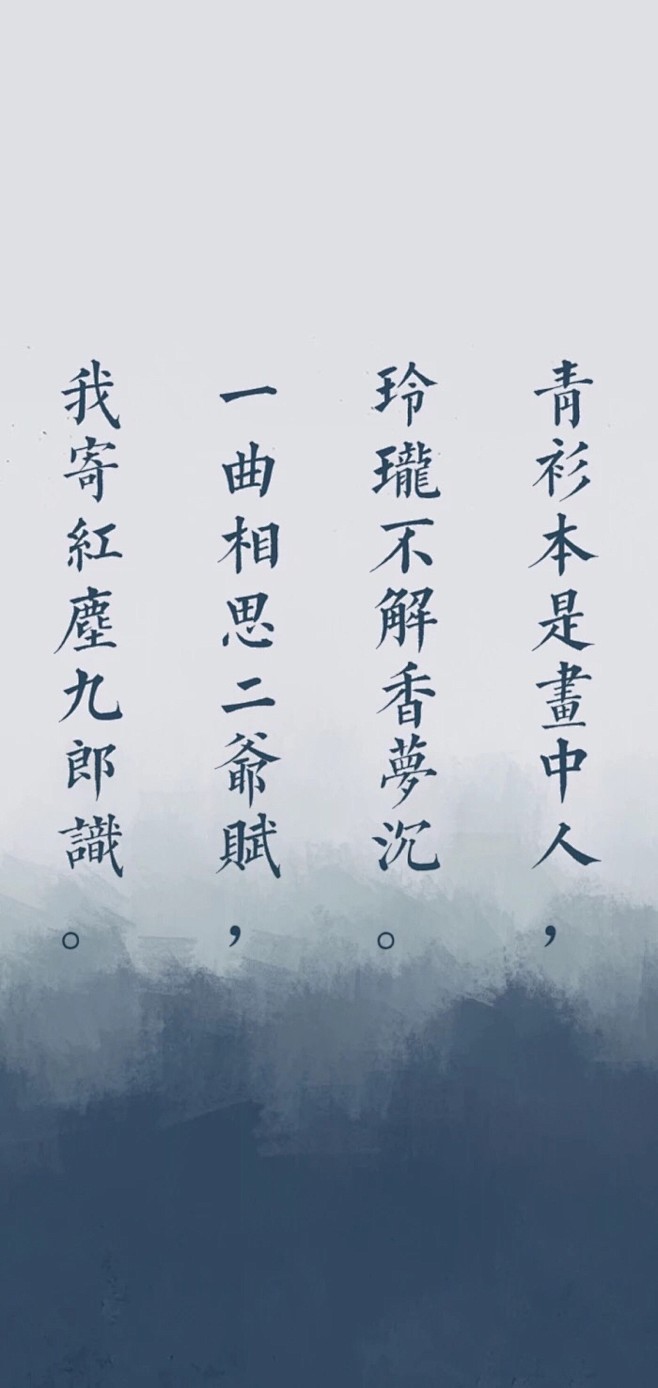 青衫本是畫中人，
玲瓏不解香夢沉。
一曲相思二爺賦，
我寄紅塵九郎識。